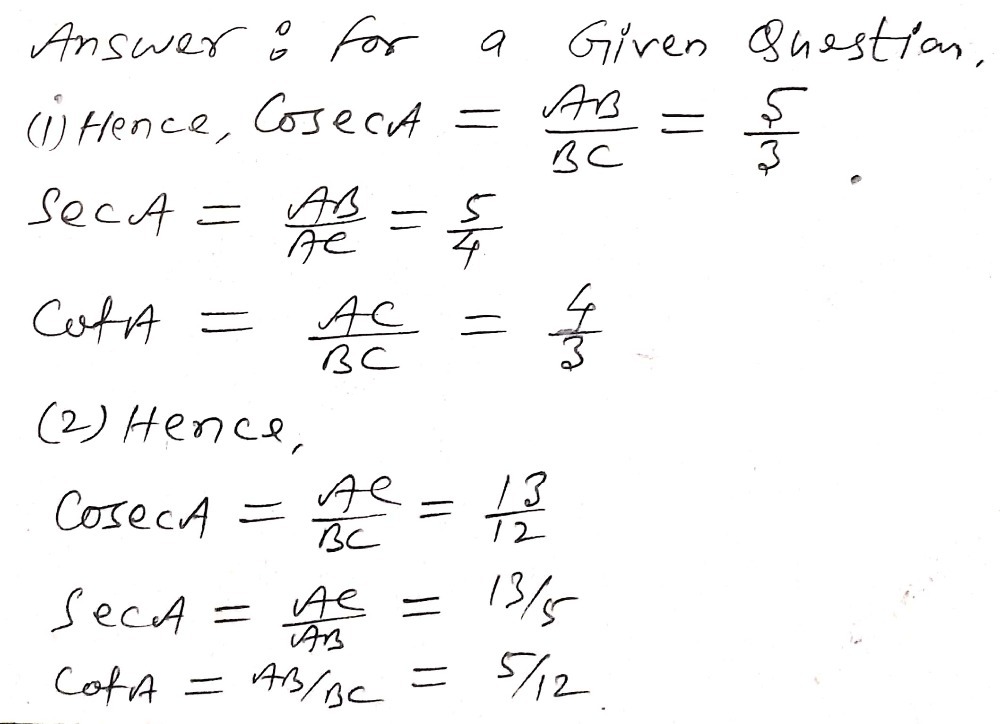 Answer : for a Given Question,
(1) Hence, CosecA = AB/BC = 5/3 .
SecA = AB/AC = 5/4
CotA = AC/BC = 4/3
(2) Hence,
CosecA = AC/BC = 13/12
SecA = AC/AB = 13/5
CotA = AB/BC = 5/12